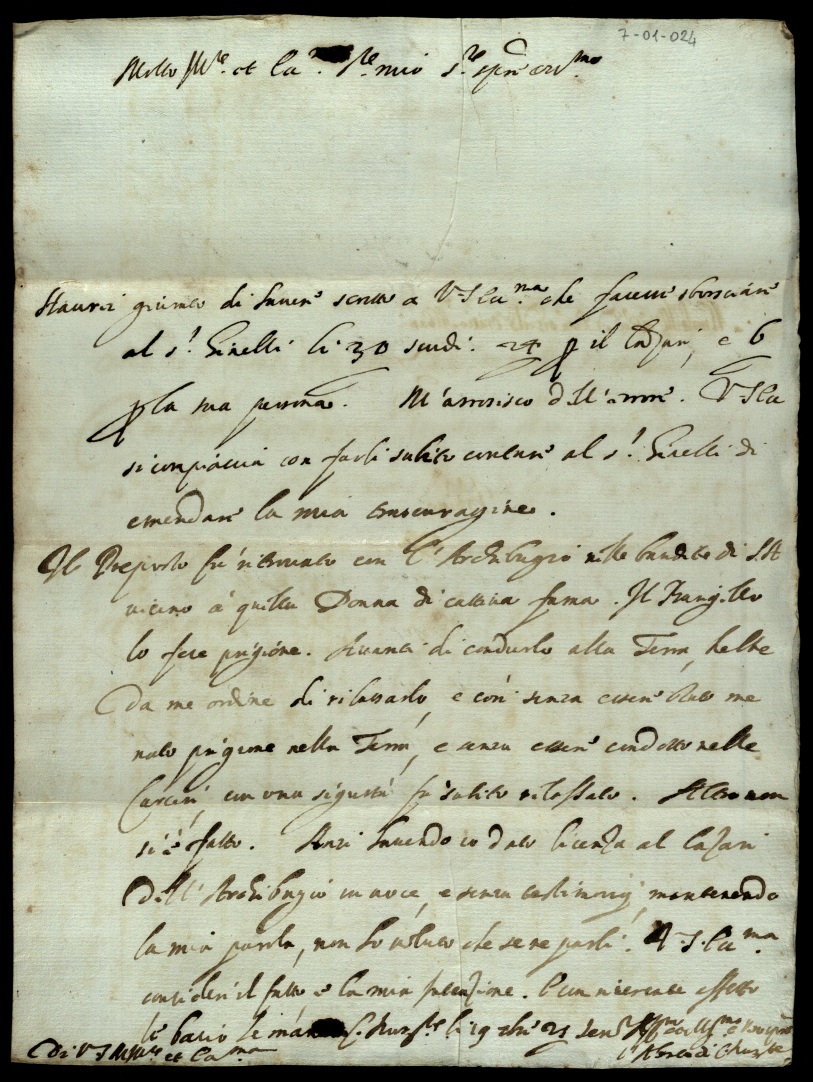 7-01-024
Molto Ill.re et Ecc.
giurato di havere scritto a V S Ecc.ma che facesse sborsare
al s.r Ginelli li 30 scudi. 24 p il Lazari, e 6
p la sua persona. M'arrosisco dell'errore. V S Ecc
si compiaccia con farli subito contare al s.r Ginelli di
emendare la mia trascuragine.
Il Preposto fu ritrovato con l'Archibugio nelle bandite di S A
vicino a quella Donna di cattiva fama. Il
lo fece prigione. Avanti di condurlo alla Terra, hebbe
da me ordine di rilassarlo, e così senza essere stato me
nato prigione nella Terra, e senza essere condotto nelle
Carceri, con una sigurtà fu subito rilassato. Altro non
si è fatto. Anzi havendo io dato licenza al Lazari
dell'Archibugio in voce, e senza testimonij mantenendo
la mia parola, non ho voluto che se ne parli. V.S. Ecc.ma
consideri il fatto e la mia intenzione. E con riverente affetto
le bacio le mani. li 19
Di V S M Ill.re et Ecc.ma